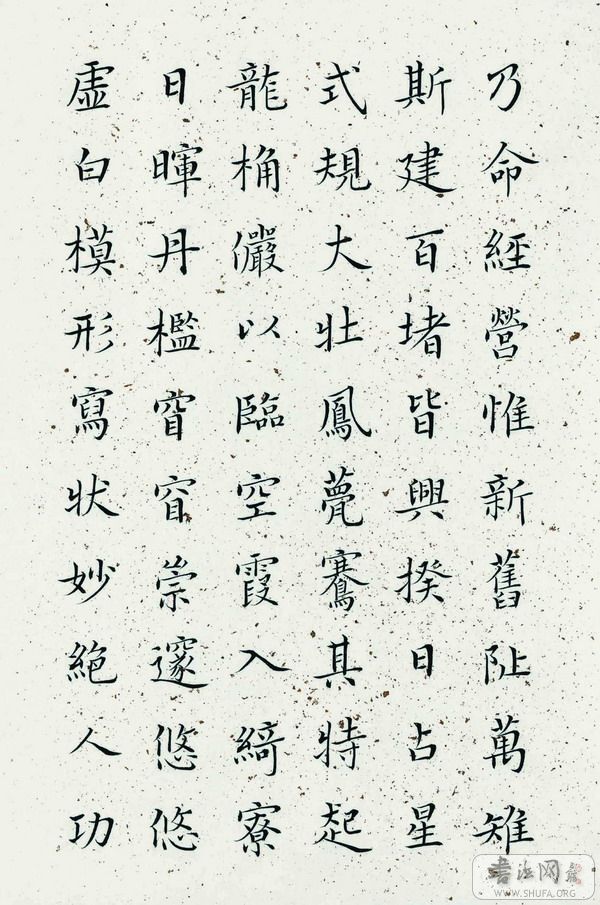 乃命經營惟新舊阯萬雉
斯建百堵皆興揆日占星
式規大壯鳳甍鶱其特起
龍桷儼以臨空霞入綺寮
日暉丹檻窅窅崇邃悠悠
虛白模形寫状妙絕人功
书法网
WWW.SHUFA.ORG